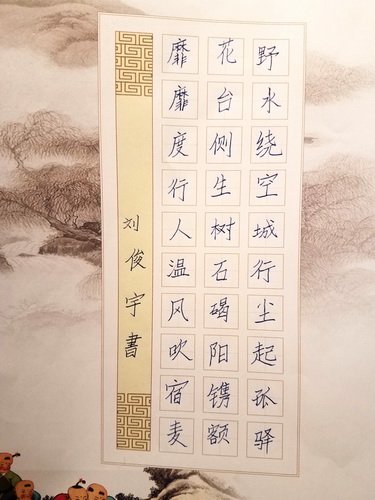 野水绕空城行尘起孤驿
花台侧生树石碣阳镌额
靡靡度行人温风吹宿麦
刘俊宇書